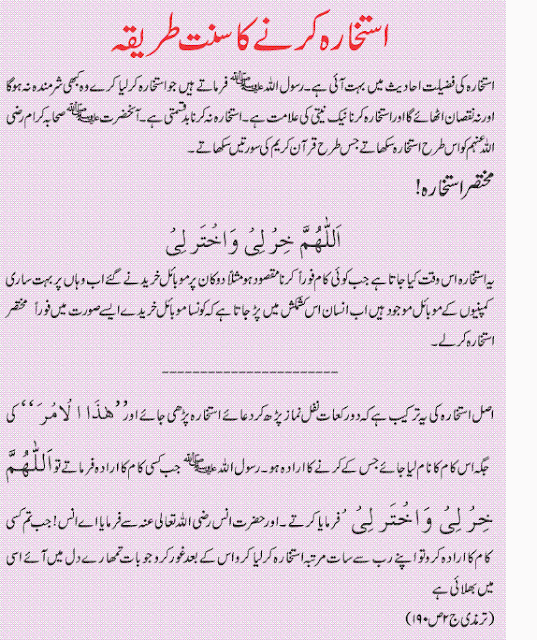 استخارہ کرنے کا سنت طریقہ
استخارہ کی فضیلت احادیث میں بہت آئی ہے۔ رسول اللہ ﷺ فرماتے ہیں جو استخارہ کر لیا کرے وہ کبھی شرمندہ نہ ہوگا
اور نہ نقصان اٹھائے گا اور استخارہ کرنا نیک نیتی کی علامت ہے۔ استخارہ نہ کرنا بدقسمتی ہے۔ آنحضرت ﷺ صحابہ کرام رضی
اللہ عنہم کو اس طرح استخارہ سکھاتے جس طرح قرآن کریم کی سورتیں سکھاتے۔
مختصر استخارہ!
اَللّٰهُمَّ خِرْ لِیْ وَاخْتَر لِیْ
یہ استخارہ اس وقت کیا جاتا ہے جب کوئی کام فوراً کرنا مقصود ہو مثلاً دوکان پر موبائل خریدنے گئے اب وہاں پر بہت ساری
کمپنیوں کے موبائل موجود ہیں اب انسان اس کشمکش میں پڑ جاتا ہے کہ کونسا موبائل خریدے ایسے صورت میں فوراً مختصر
استخارہ کرلے۔
------------------------
اصل استخارہ کی یہ ترکیب ہے کہ دو رکعات نفل نماز پڑھ کر دعائے استخارہ پڑھی جائے اور ’’ھٰذَا الْاَمْرَ‘‘ کی
جگہ اس کام کا نام لیا جائے جس کے کرنے کا ارادہ ہو۔ رسول اللہ ﷺ جب کسی کام کا ارادہ فرماتے تو اَللّٰهُمَّ
خِرْ لِیْ وَاخْتَر لِیْ ‘ فرمایا کرتے۔ اور حضرت انس رضی اللہ تعالی عنہ سے فرمایا اے انس! جب تم کسی
کام کا ارادہ کرو تو اپنے رب سے سات مرتبہ استخارہ کر لیا کرو اس کے بعد غور کرو جو بات تمھارے دل میں آئے اسی
میں بھلائی ہے
(ترمذی ج ۲ ص ۱۹۰)